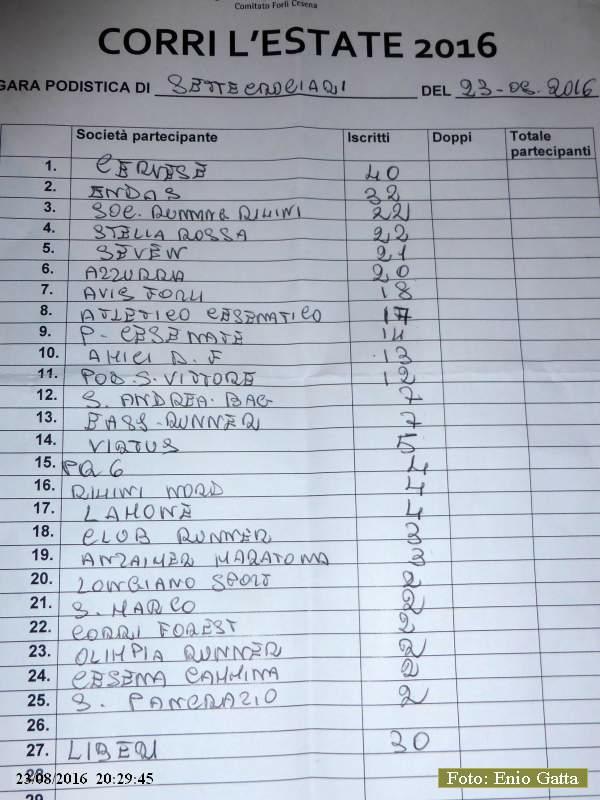 Comitato Forlì Cesena
CORRI L'ESTATE 2016
GARA PODISTICA DI SETTECROCIARI DEL 23-08.2016
Società partecipante Iscritti Doppi Totale partecipanti
1. CERVESE 40
2. ENDAS 32
3. SOC. RUNNING RIMINI 22
4. STELLA ROSSA 22
5. SEVEN 21
6. AZZURRA 20
7. AVIS FORLI 18
8. ATLETICO CESENATICO 17
9. P. CESENATE 14
10. AMICI D. F 13
11. POD. S. VITTORE 12
12. S. ANDREA. BAG 7
13. BASS-RUNNER 7
14. VIRTUS 5
15. 4
16. RIMINI NORD 4
17. LAMONE 4
18. CLUB RUNNER 3
19. MARATONA 3
20. LONGIANO SPORT 2
21. S. MARCO 2
22. CORRI FOREST 2
23. OLIMPIA RUNNER 2
24. CESENA CAMMINA 2
25. S. PANCRAZIO 2
26.
27. LIBERI 30
28.
23/08/2016 20:29:45
Foto: Enio Gatta
29.